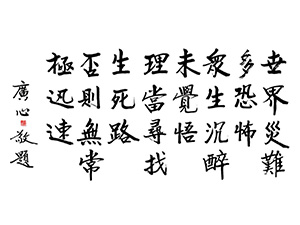 世界災難
多恐怖
眾生沉醉
未覺悟
理當尋找
生死路
否則無常
極迅速
廣心敬題